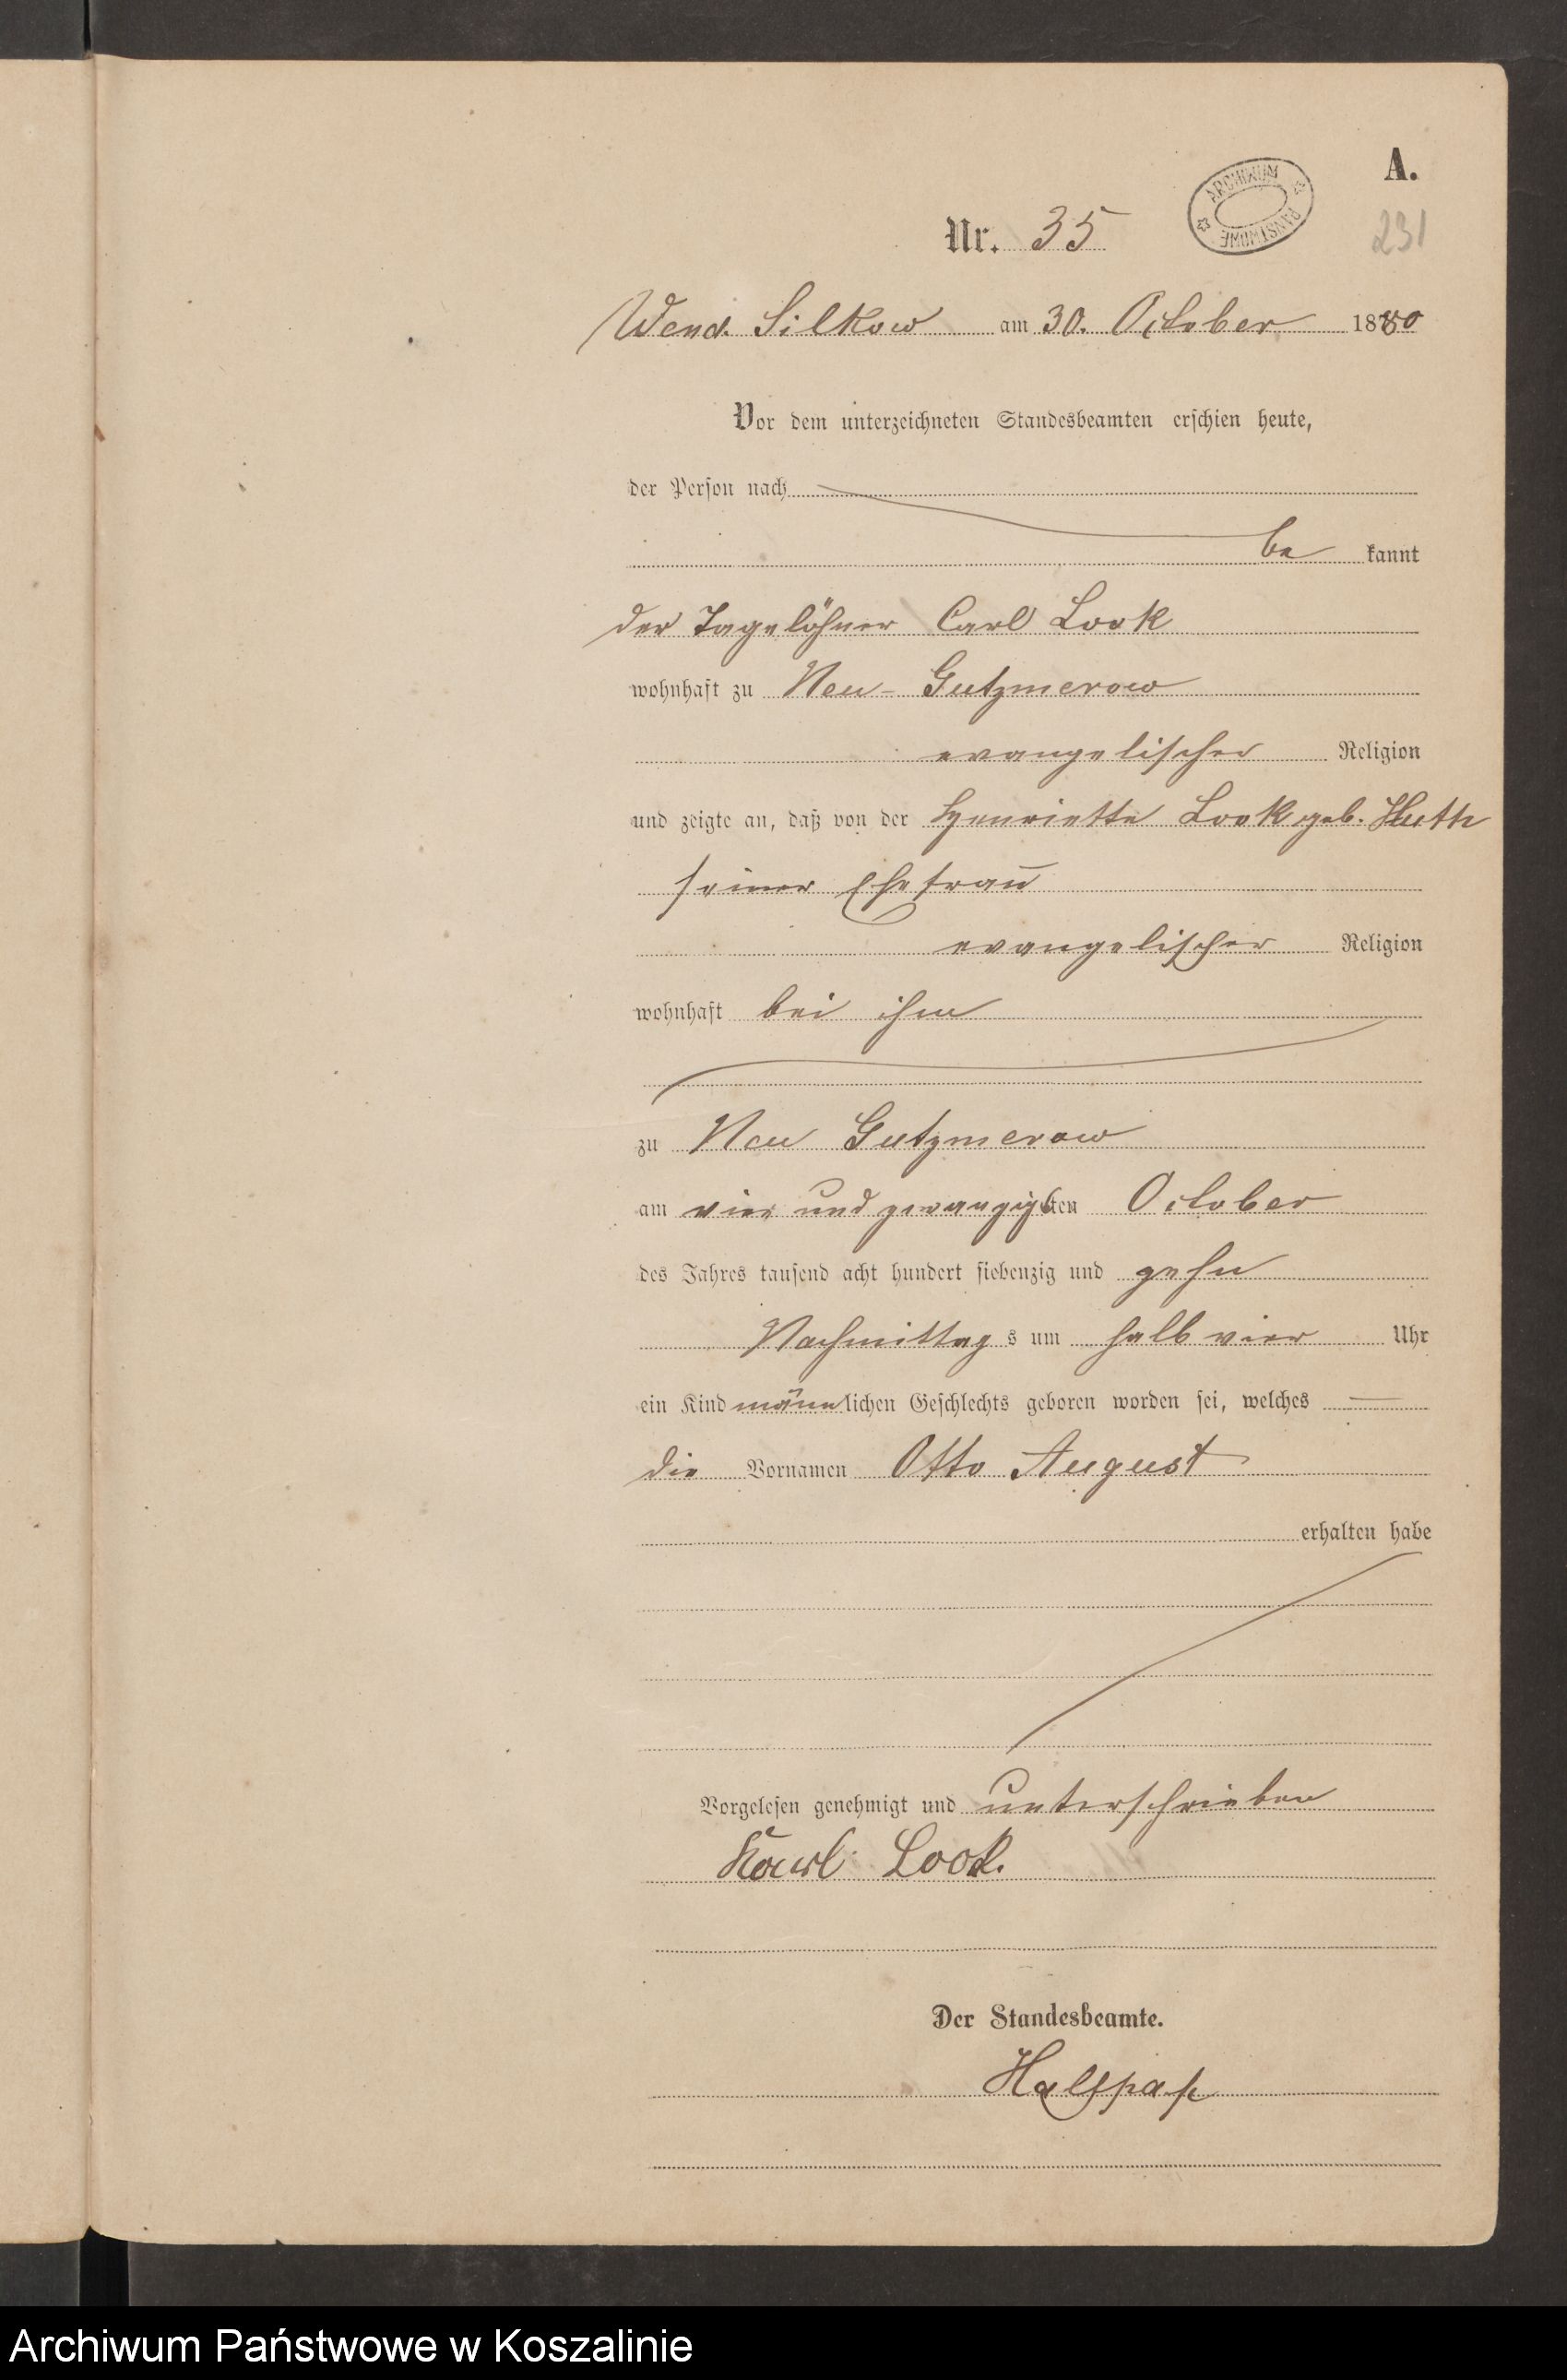 A.
ARCHIWUM PAŃSTWOWE
Nr. 35
231
Wend. Silkow am 30. October 1880
Vor dem unterzeichneten Standesbeamten erschien heute,
der Person nach
be kannt
der Tagelöhner Carl Look
wohnhaft zu Neu-Gutzmerow
evangelischer Religion
und zeigte an, daß von der Henriette Look geb. Huth
seiner Ehefrau
evangelischer Religion
wohnhaft bei ihm
zu Neu Gutzmerow
am vier und zwanzigsten October
des Jahres tausend acht hundert siebenzig und zehn
Nachmittag s um halb vier Uhr
ein Kind männlichen Geschlechts geboren worden sei, welches
die Vornamen Otto August
erhalten habe
Vorgelesen genehmigt und unterschrieben
Karl Look.
Der Standesbeamte.
Halfpap
Archiwum Państwowe w Koszalinie